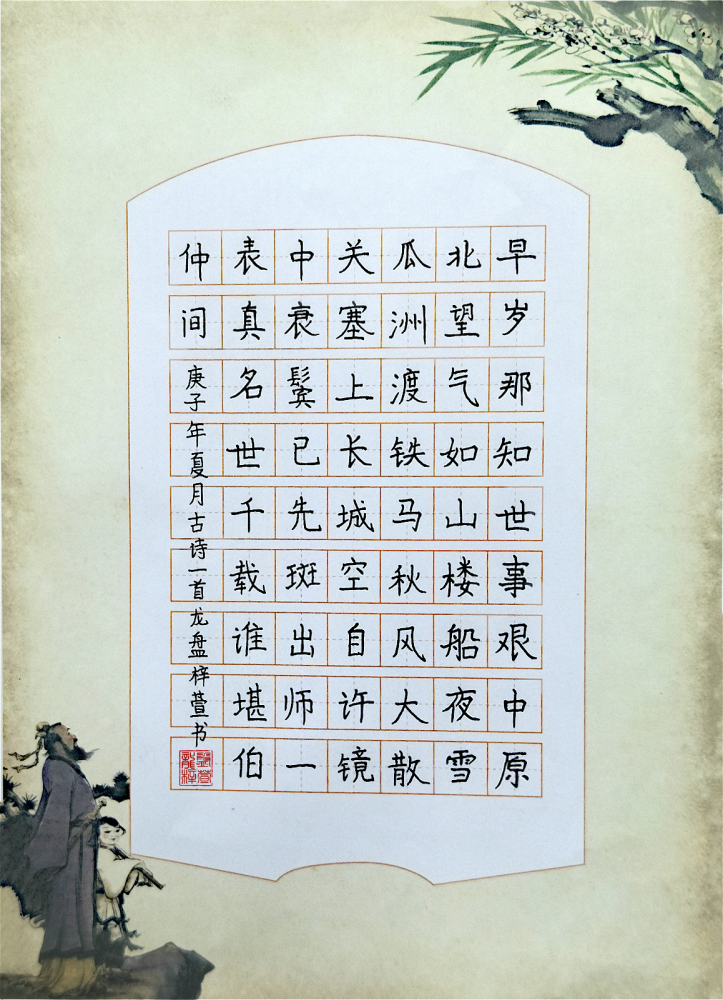 早岁那知世事艰中原
北望气如山楼船夜雪
瓜洲渡铁马秋风大散
关塞上长城空自许镜
中衰鬓已先斑出师一
表真名世千载谁堪伯
仲间
庚子年夏月古诗一首龙盘梓萱书